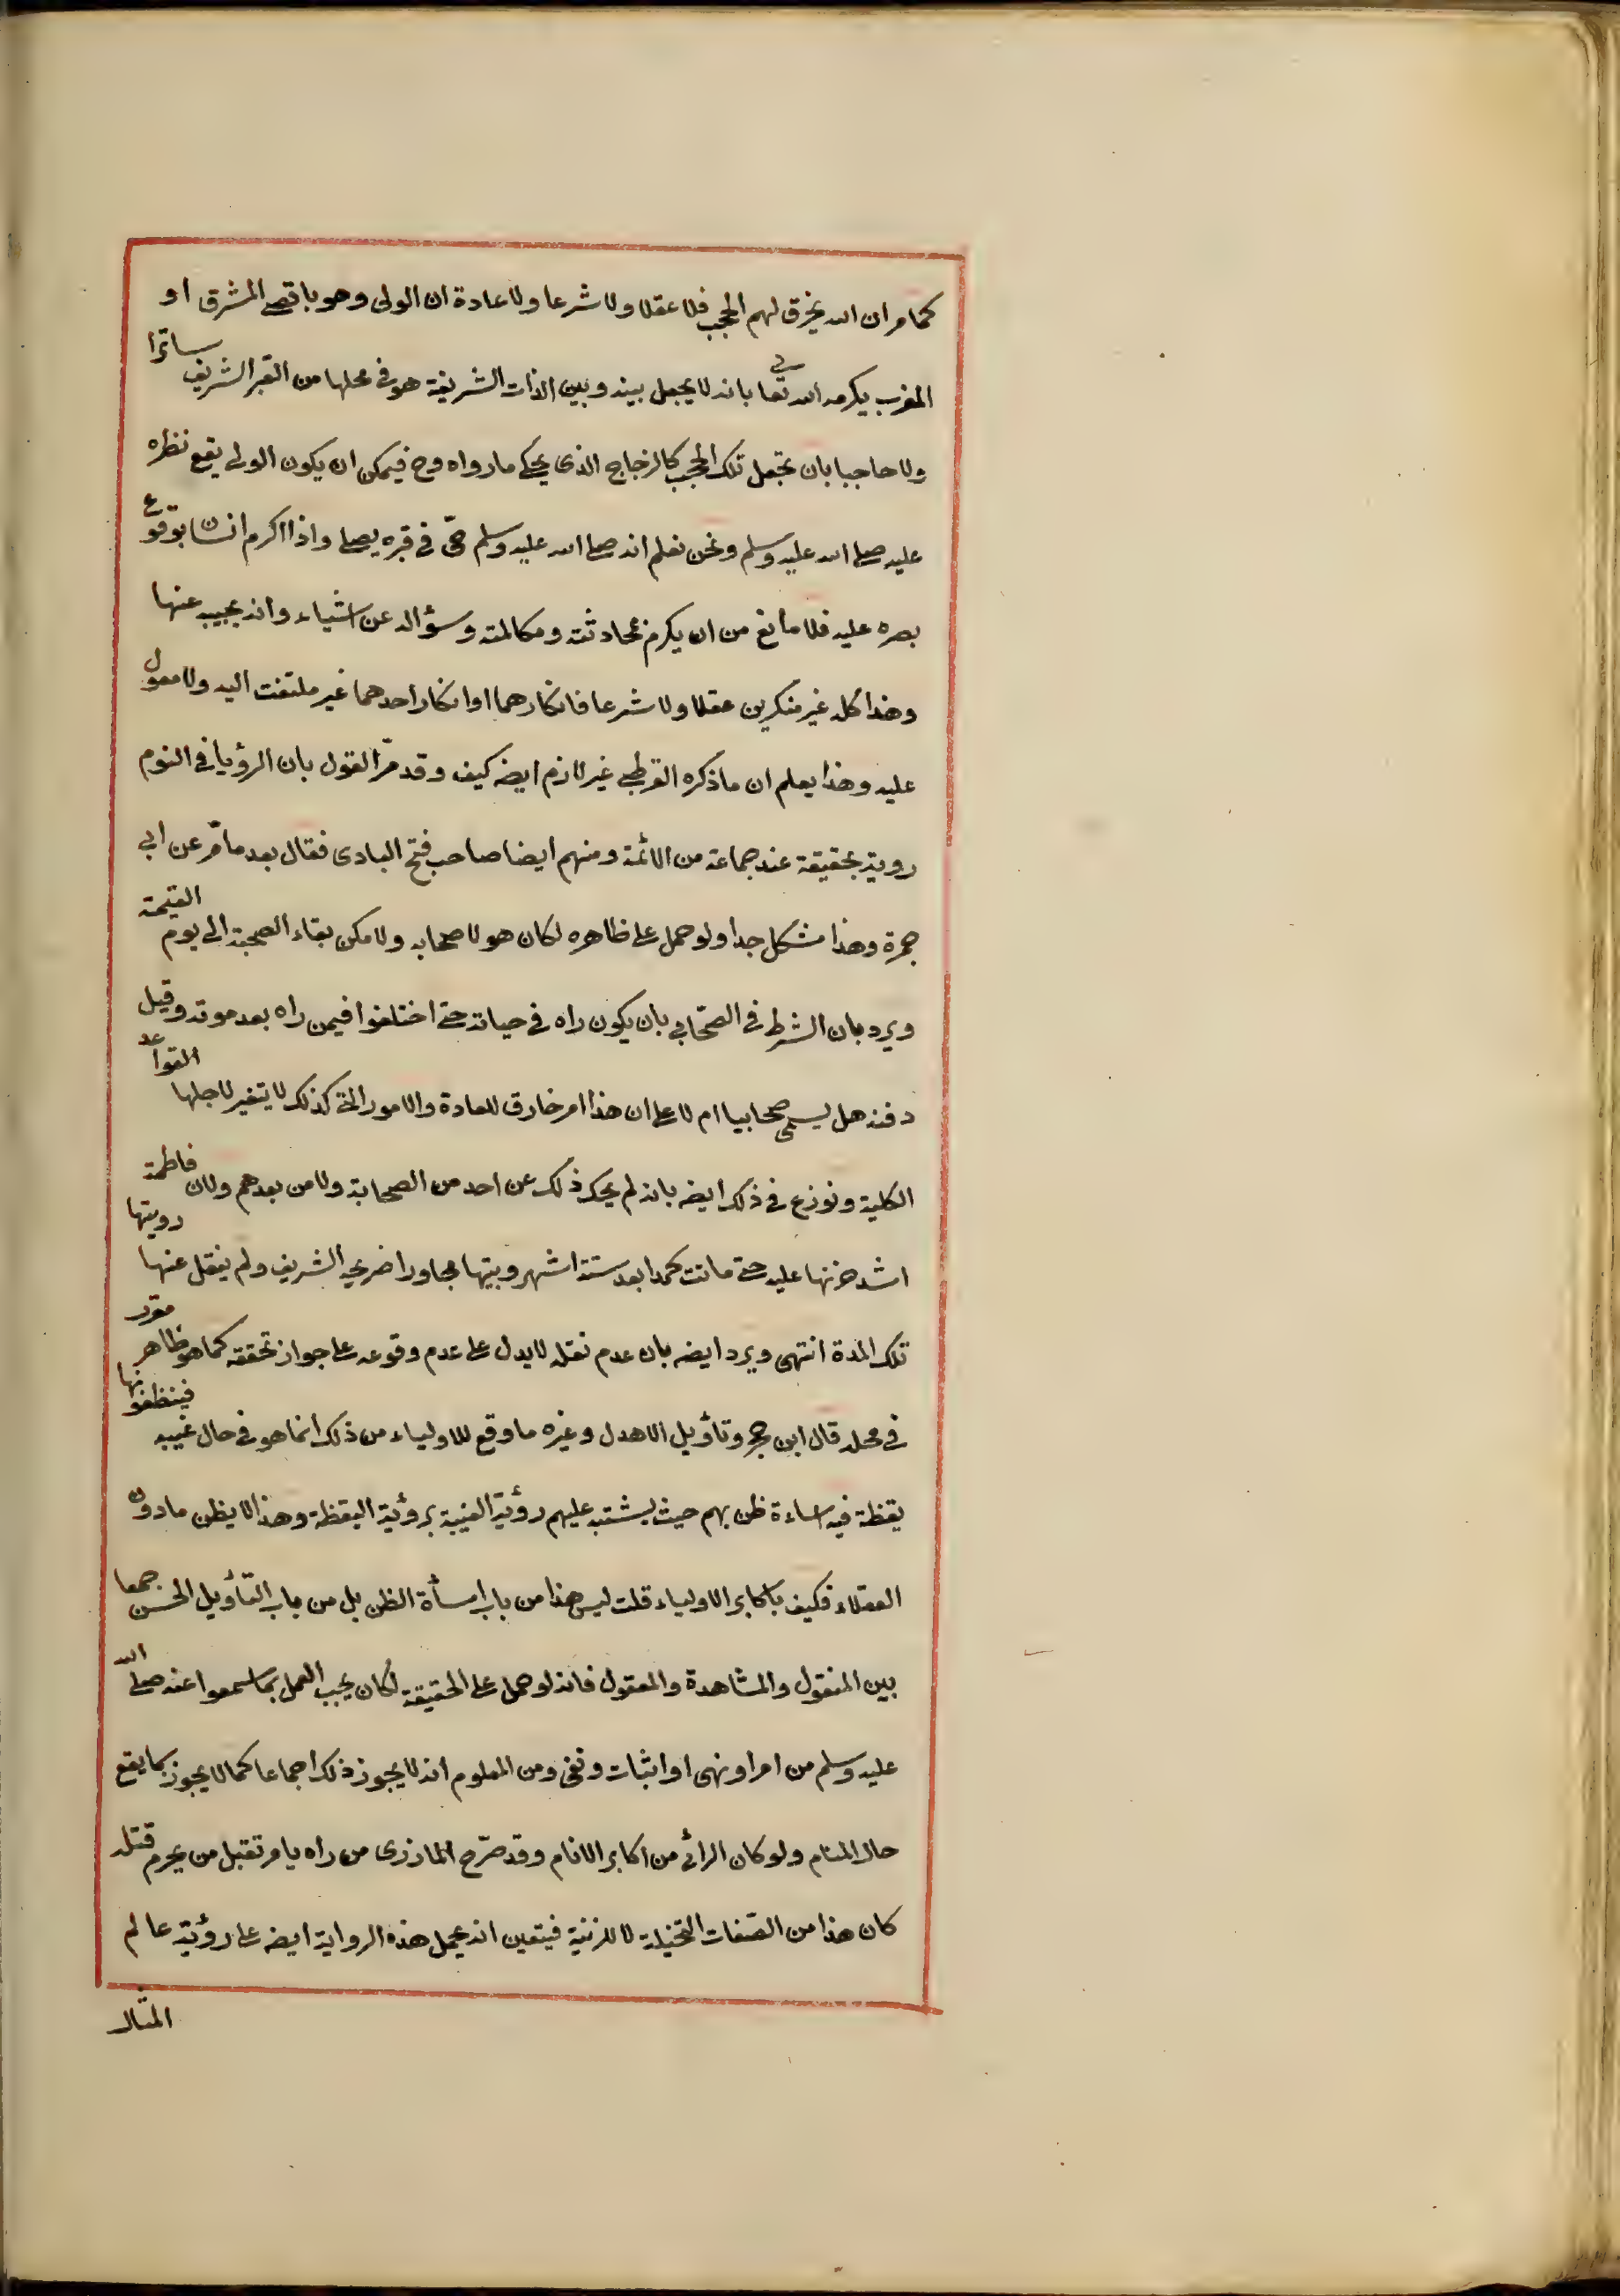 كمامر ان الله يخرق لهم الحجب فلا عقلا ولا شرعا ولا عادة ان الولى وهو باقصى المشرق او
المغرب يكرمه الله تعالى بانه لا يجعل بينه وبين الذات الشريفة هو فى محلها من القبر الشريف ساترا
ولا حاجبا بان تجعل تلك الحجب كالزجاج الذى يحكى ماروراه وح فيمكن ان يكون الولى يقع نظره
عليه صلى الله عليه وسلم ونحن نعلم انه صلى الله عليه وسلم حىّ فى قبره يصلى واذا اكرم انسان بوقوع
بصره عليه فلا مانع من ان يكرم بمحادثته ومكالمته وسؤاله عن اشياء وانه يجيبه عنها
وهذا كله غير منكرين عقلا ولا شرعا فانكارهما او انكار احدهما غير ملتفت اليه ولا معول
عليه وهذا يعلم ان ما ذكره القرطبى غير لازم ايضه كيف وقد مرّ القول بان الرؤيا فى النوم
روية بحقيقة عند جماعة من الائمة ومنهم ايضا صاحب فتح البارى فقال بعد ما مرّ عن ابى
جمرة وهذا مشكل جدا ولو حمل على ظاهره لكان هولا صحابه ولا مكن بقاء الصحبة الى يوم القيمة
ويرد بان الشرط فى الصحابى بان يكون راه فى حياته حتى اختلفوا فيمن راه بعد موته وقيل
دفنه هل يسمى صحابيا ام لا على ان هذا امر خارق للعادة والامور التى كذلك لا يتغير لاجلها القواعد
الكلية ونوزع فى ذلك ايضه بانه لم يحك ذلك عن احد من الصحابة ولا من بعدهم ولان فاطمة
اشد حزنها عليه حتى ماتت كمدا بعد ستة اشهر وبيتها مجاورا ضريحه الشريف ولم ينقل عنها رويتها
تلك المدة انتهى ويرد ايضه بان عدم نقله لا يدل على عدم وقوعه على جواز تحققه كما هو ظاهر مقرر
فى محله قال ابن حجر وتأويل الاهدل وغيره ما وقع للاولياء من ذلك انما هو فى حال غيبه فينظفونها
يقظة فيه اساءة ظن بهم حيث يشتبه عليهم رؤية الغيبة برؤية اليقظة وهذا لا يظن مادون
العقلاء فكيف باكابر الاولياء قلت ليس هذا من باب امسأة الظن بل من باب التأويل الحسن جمعا
بين المنقول والمشاهدة والمعقول فانه لو حمل على الحقيقة لكان يجب العمل بما سمعوا عنه صلى الله
عليه وسلم من امر او نهى او اثبات ونفى ومن المعلوم انه لا يجوز ذلك اجماعا كما لا يجوز بما يقع
حال المنام ولو كان الرائى من اكابر الانام وقد صرّح المازرى من راه يامر تقبل من يحرم قتله
كان هذا من الصّفات المتخيلة لا المرئية فيتعين انه يحمل هذه الرواية ايضه على رؤية عالم
المثال